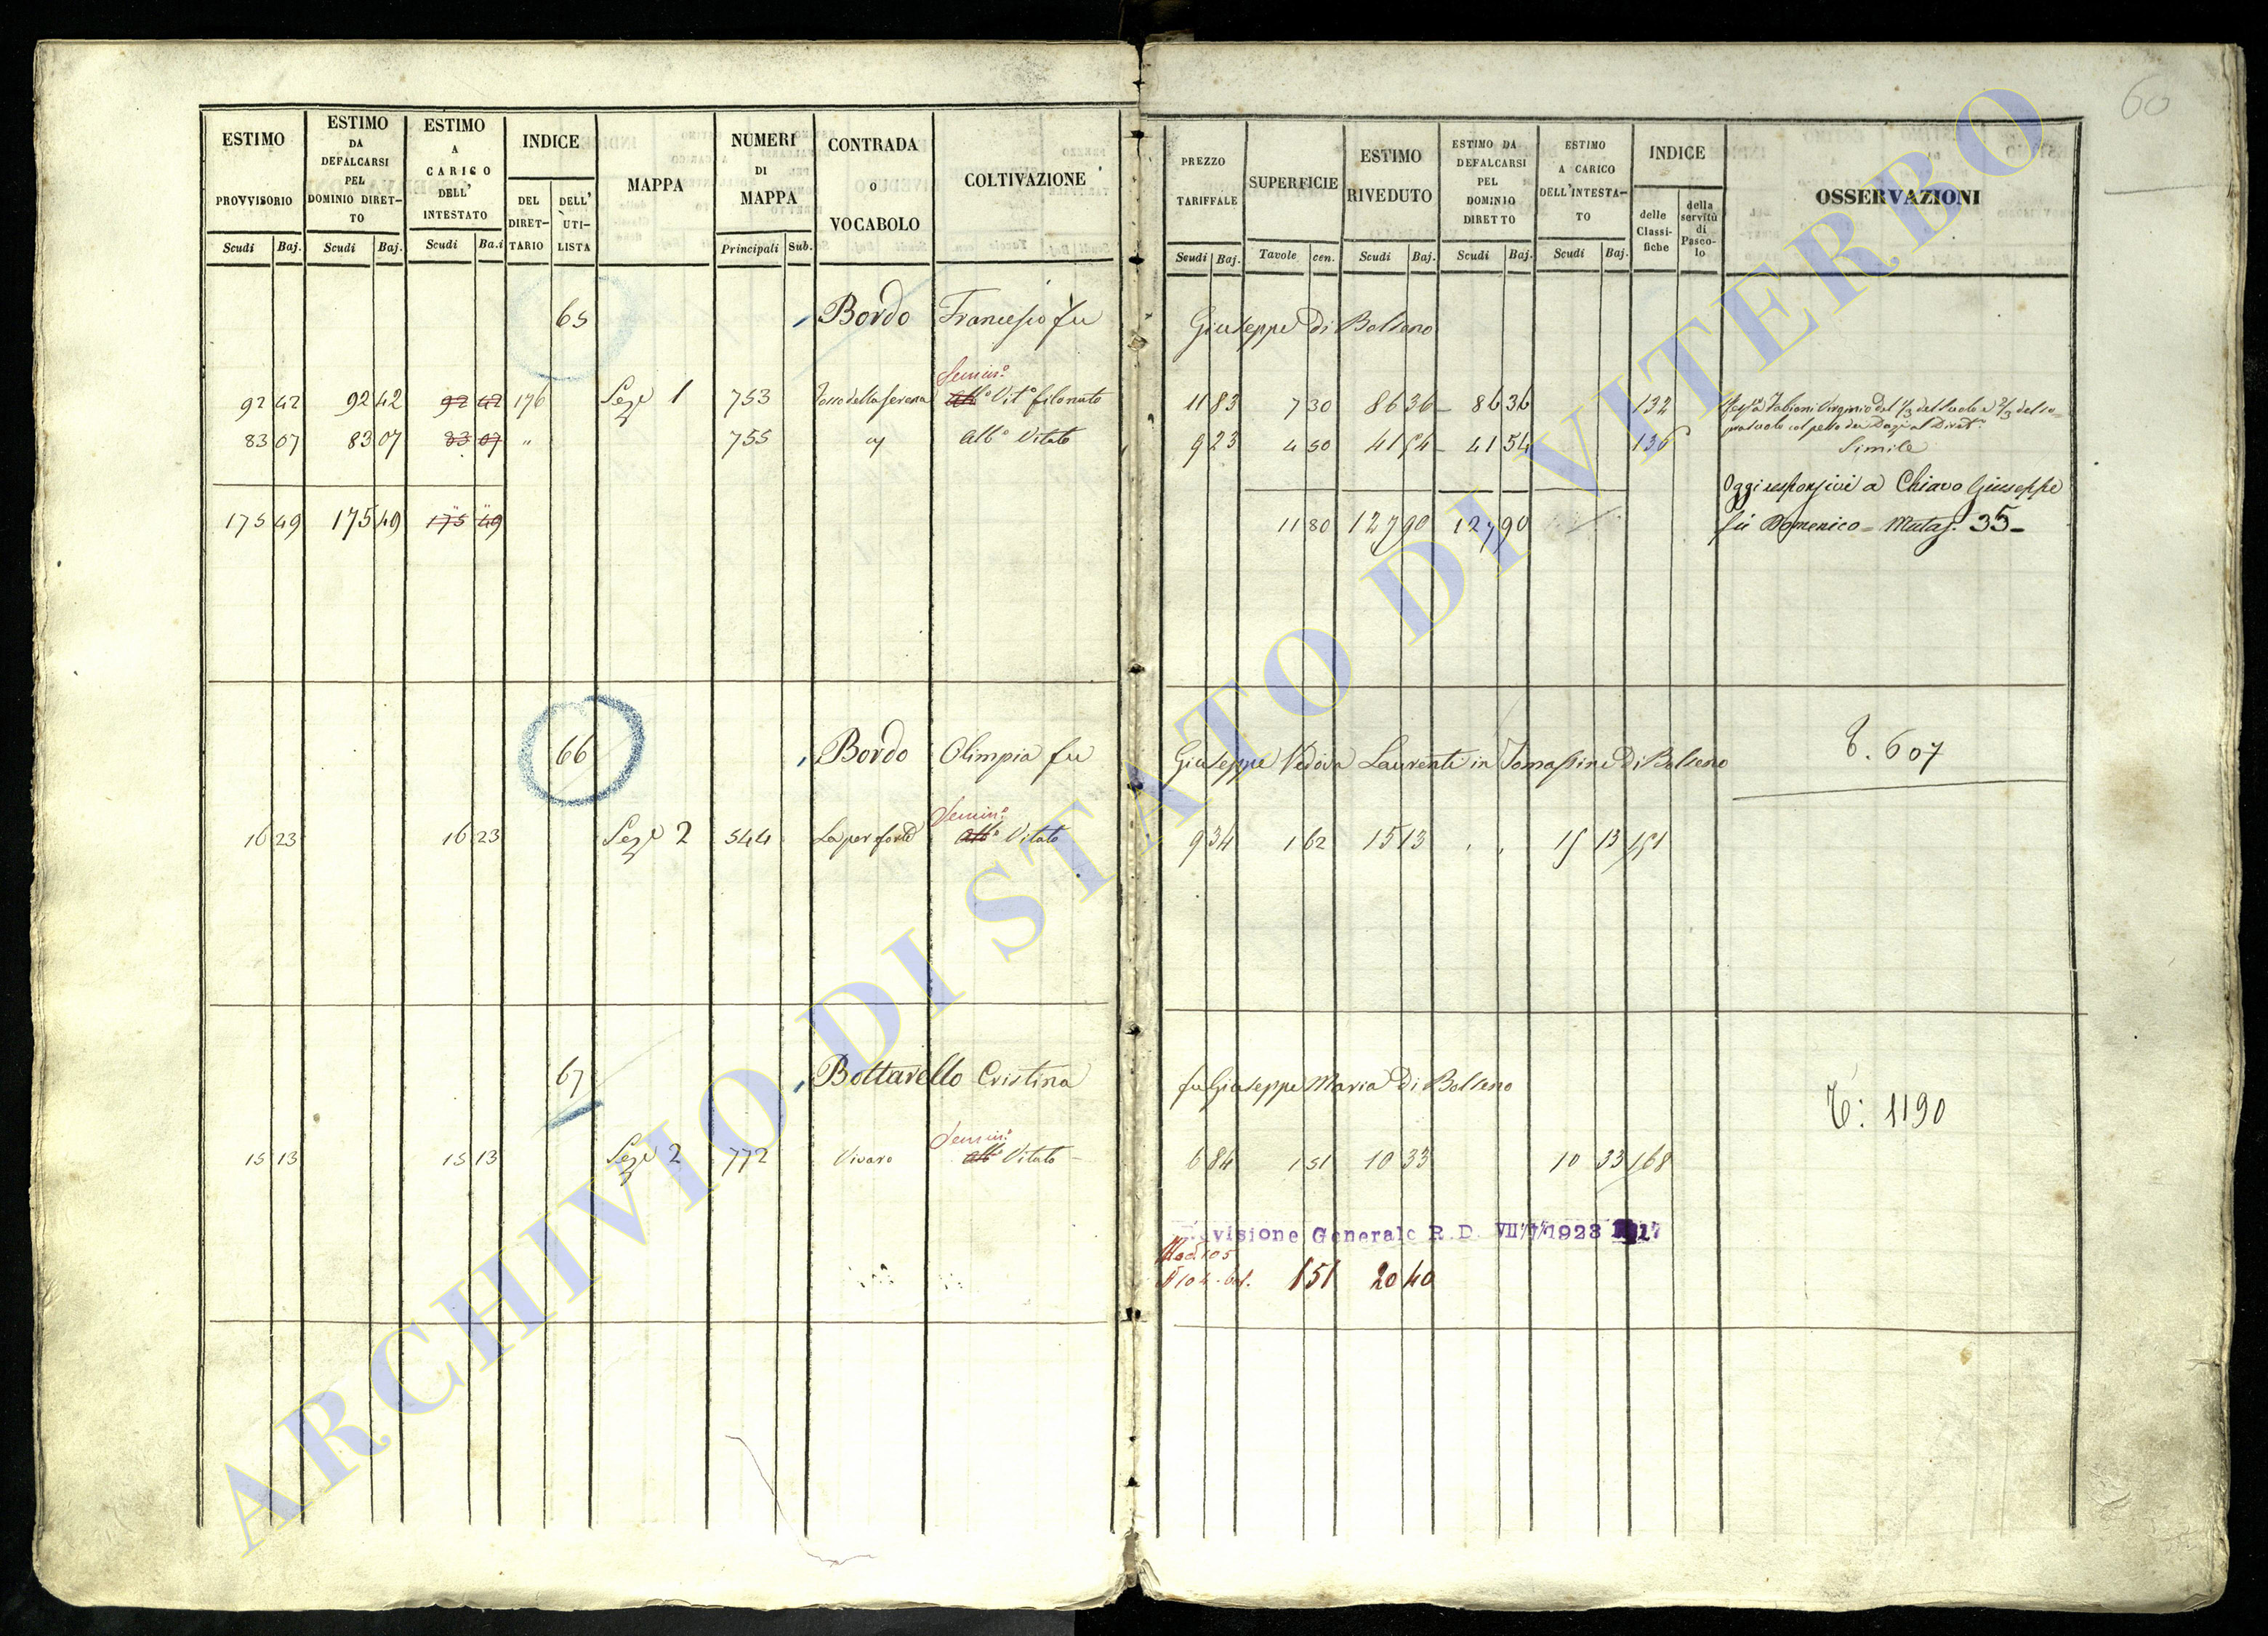 60
ESTIMO PROVVISORIO
ESTIMO DA DEFALCARSI PEL DOMINIO DIRET-TO
ESTIMO A CARICO DELL' INTESTATO
INDICE
DEL DIRET-TARIO
DELL' UTI-LISTA
MAPPA
NUMERI DI MAPPA
CONTRADA O VOCABOLO
COLTIVAZIONE
Scudi Baj. Scudi Baj. Scudi Ba.i Principali Sub.
PREZZO TARIFFALE
SUPERFICIE
ESTIMO RIVEDUTO
ESTIMO DA DEFALCARSI PEL DOMINIO DIRETTO
ESTIMO A CARICO DELL'INTESTA-TO
INDICE
delle Classi-fiche
della servitù di Pasco-lo
OSSERVAZIONI
Scudi Baj. Tavole cen. Scudi Baj. Scudi Baj. Scudi Baj.
65 Bordo Francesco fu Giuseppe di Bolseno
Semin.o
92 42 92 42 92 42 176 Sez.e 1 753 Fosso della Serena alb.o Vit.o filonato 11 83 7 30 86 36 86 36 132
83 07 83 07 83 07 " 755 alb.o Vitato 9 23 4 50 41 54 41 54 136 Simile
Oggi responsivi a Chiavo Giuseppe
175 49 175 49 175 49 11 80 127 90 127 90 fu Domenico = Mutaz. 35-
66 Bordo Olimpia fu Giuseppe Vedova Laurenti in Tomassini di Bolseno
T. 607
Semin.o
16 23 16 23 Sez.e 2 544 alb.o Vitato 9 34 1 62 15 13 15 13 151
67 Bottarello Cristina fu Giuseppe Maria di Bolseno
T: 1190
Semin.o
15 13 15 13 Sez.e 2 772 Vivaro alb.o Vitato 6 84 1 51 10 33 10 33 168
visione Generale R. D. VII 1923
Mod 105
151 20 40
ARCHIVIO DI STATO DI VITERBO